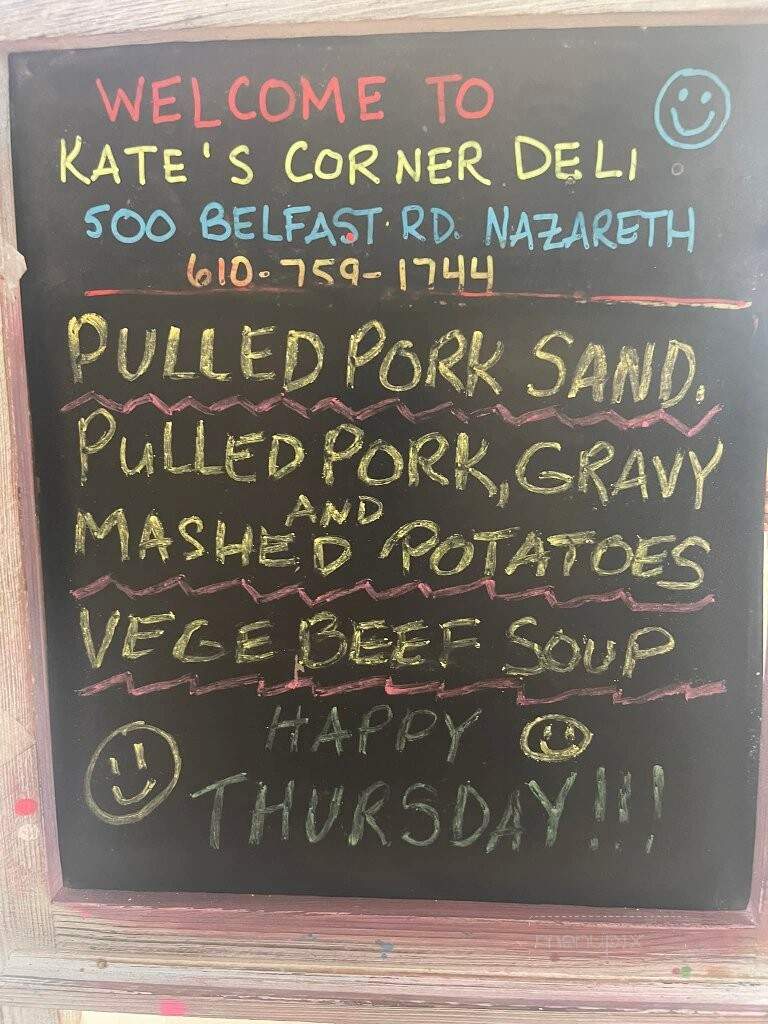 WELCOME TO
KATE'S CORNER DELI
500 BELFAST RD. NAZARETH
610-759-1744
PULLED PORK SAND.
PULLED PORK, GRAVY
AND
MASHED POTATOES
VEGE BEEF SOUP
HAPPY
THURSDAY!!!
menupix